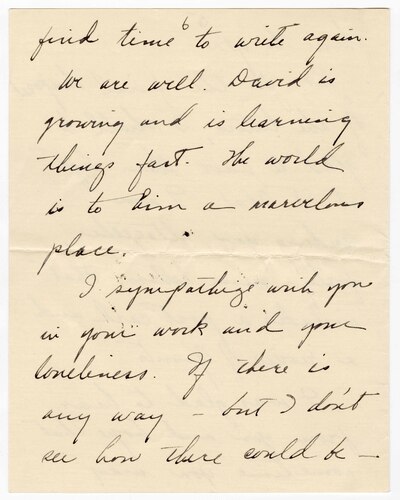 6
find time to write again.
We are well. David is
growing and is learning
things fast. The world
is to him a marvelous
place.
I sympathize with you
in your work and your
loneliness. If there is
any way – but I don't
see how there could be –